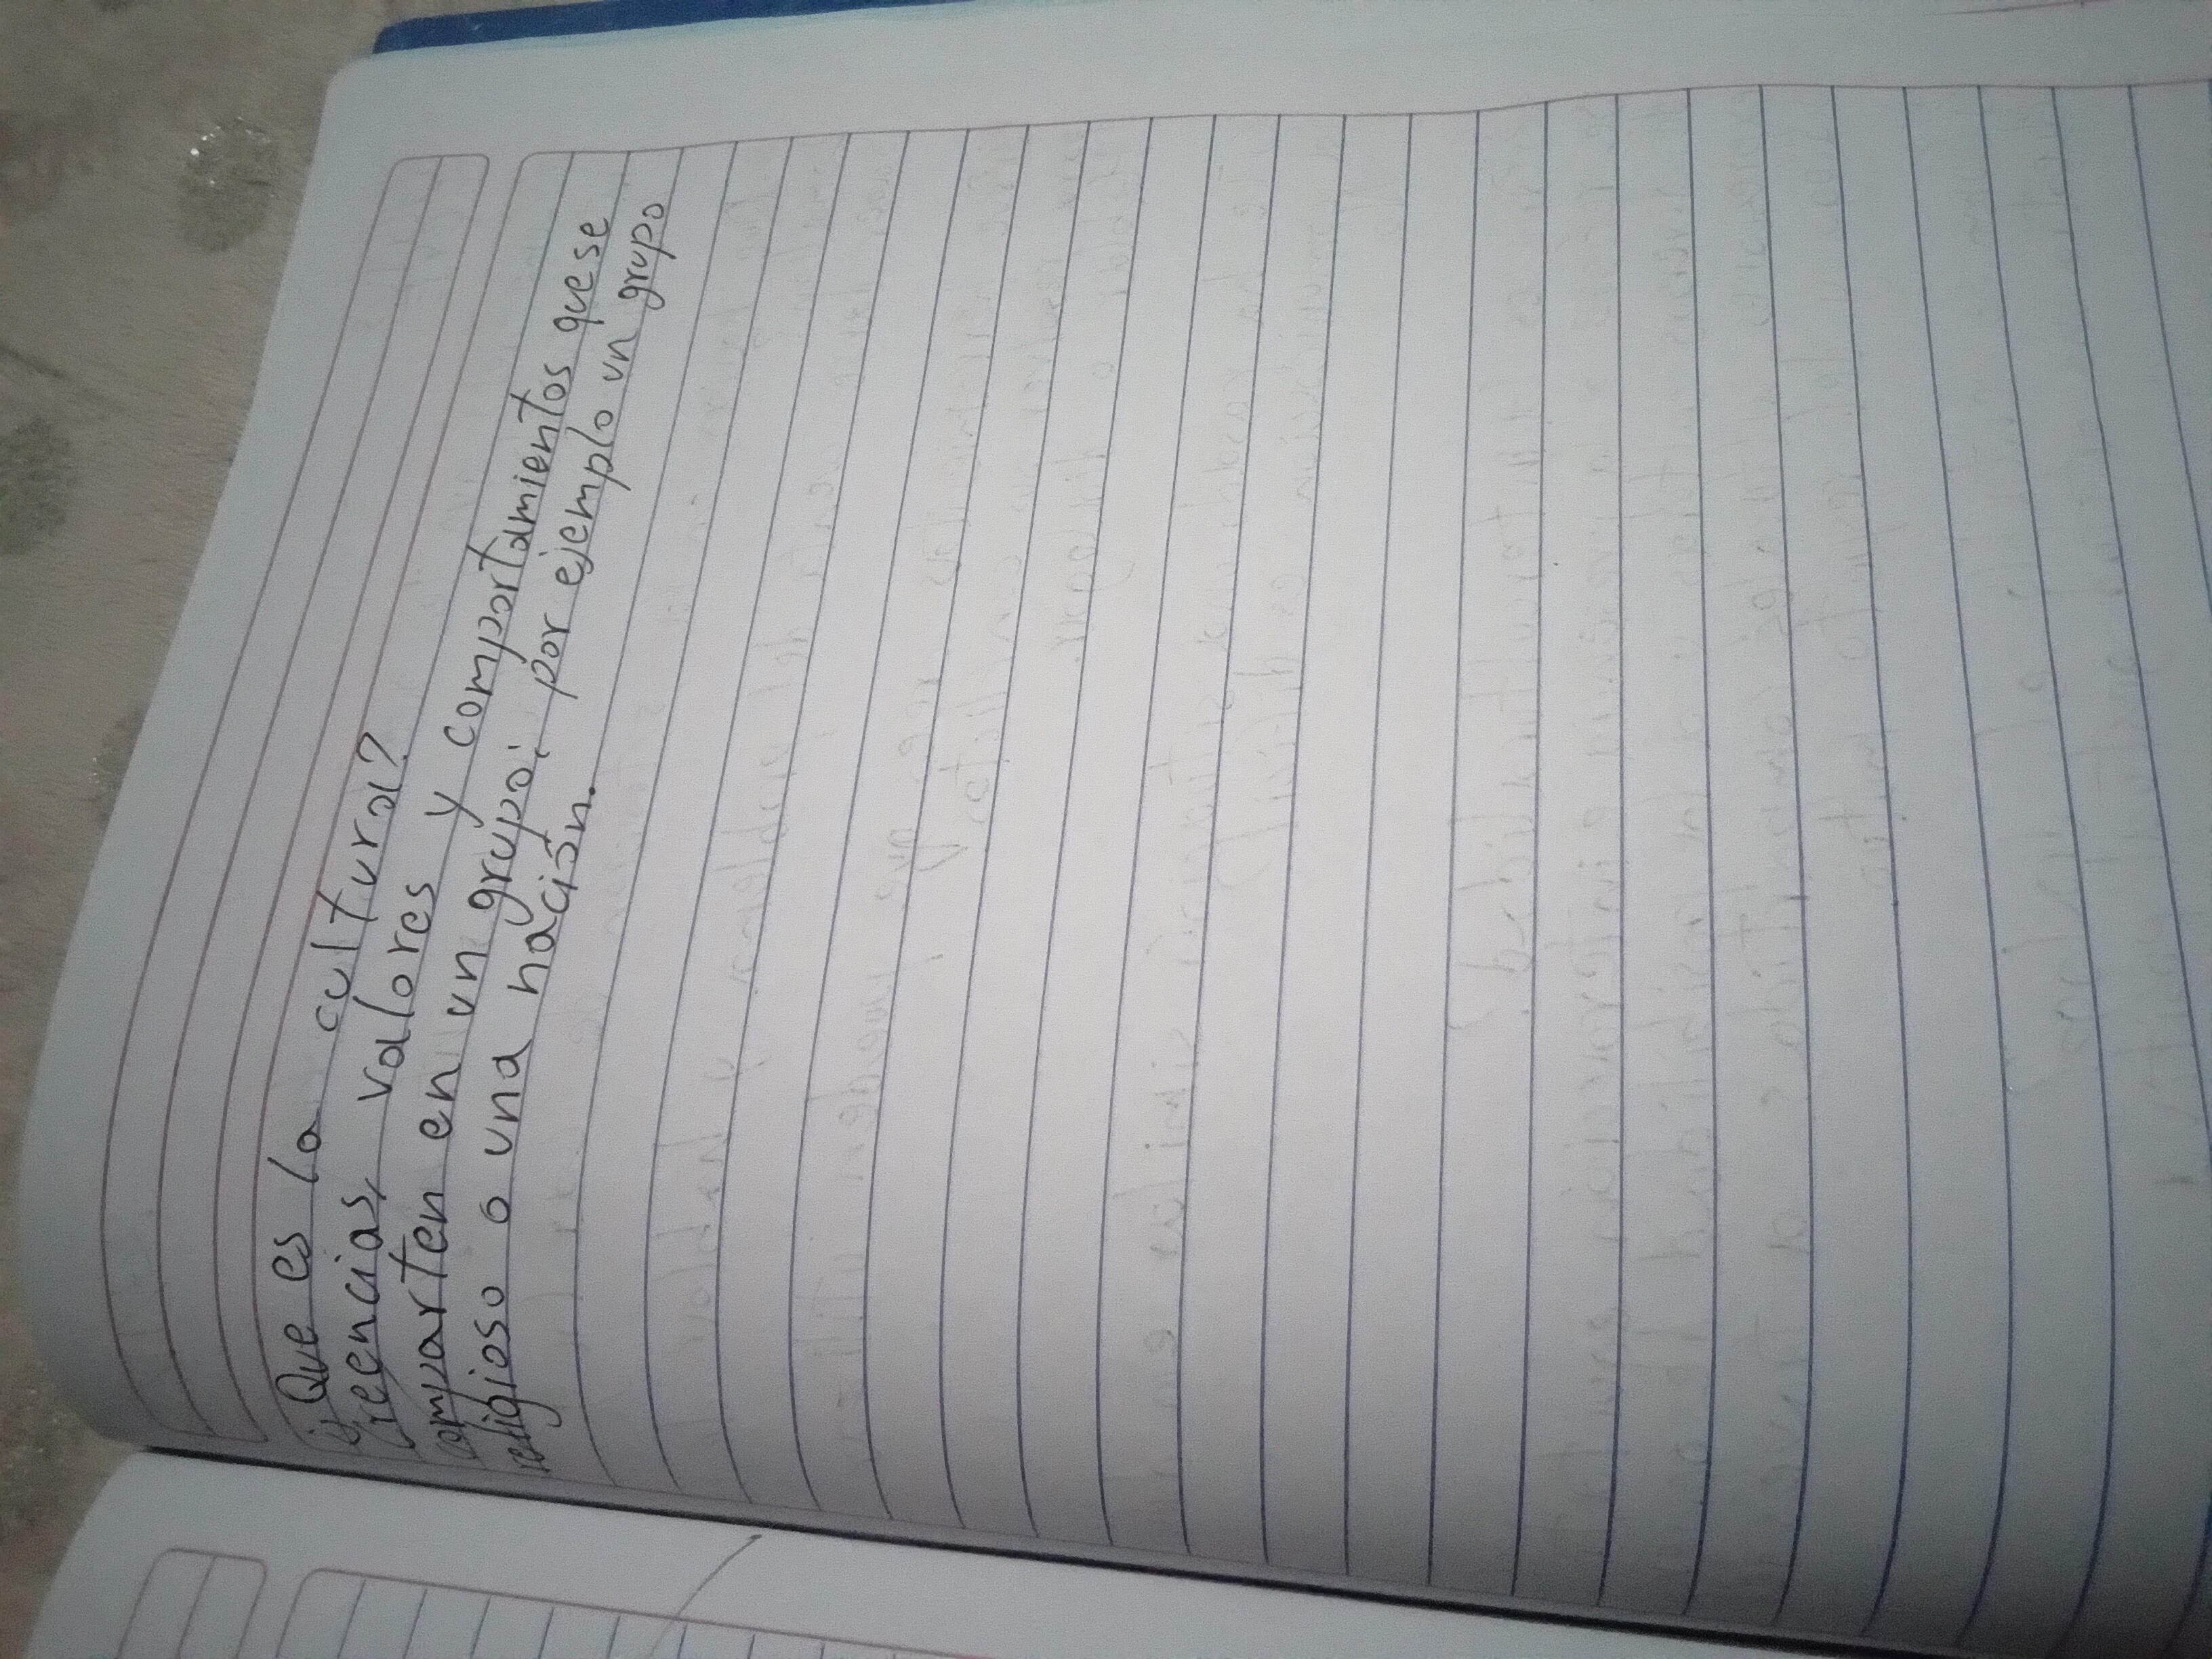 ¿Que es la cultura?
Creencias, valores y comportamientos que se
comparten en un grupo; por ejemplo un grupo
religioso o una nación.